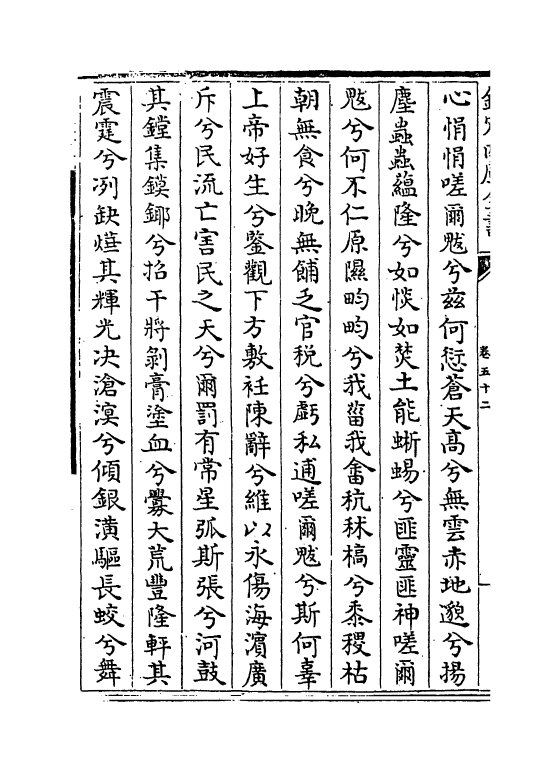 欽定四庫全書
卷五十二
心悁悁嗟爾魃兮兹何愆蒼天高兮無雲赤地邈兮揚
塵蟲蟲藴隆兮如惔如焚土能蜥蜴兮匪靈匪神嗟爾
魃兮何不仁原隰畇畇兮我葘我畬秔秫槁兮黍稷枯
朝無食兮晚無餔乏官税兮虧私逋嗟爾魃兮斯何辜
上帝好生兮鑒觀下方敷衽陳辭兮維以永傷海濱廣
斥兮民流亡害民之天兮爾罰有常星弧斯張兮河鼓
其鏜集鏌鎁兮招干將剝膏塗血兮釁大荒豐隆軯其
震霆兮冽缺燁其輝光决滄溟兮傾銀潢驅長蛟兮舞